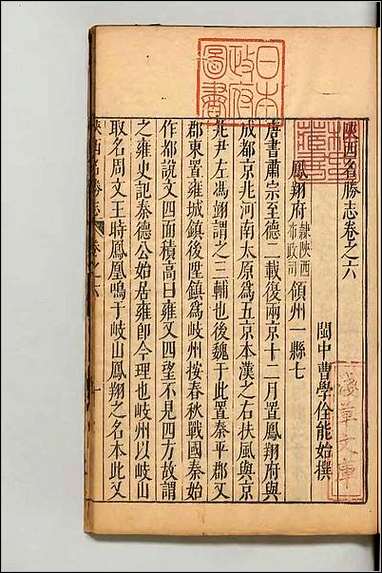 日本
政府
圖書
陝西名勝志卷之六
閩中曹學佺能始撰
淺草文庫
鳳翔府隸陝西布政司領州一縣七
唐書肅宗至德二載復兩京十二月置鳳翔府與
成都京兆河南太原爲五京本漢之右扶風與京
兆尹左馮翊謂之三輔也後魏于此置秦平郡又
郡東置雍城鎮後陞鎮爲岐州按春秋戰國秦始
作都說文四面積高曰雍又四望不見四方故謂
之雍史記秦德公始居雍即今理也岐州以岐山
取名周文王時鳳凰鳴于岐山鳳翔之名本此又
陝西名勝志
卷之六
一